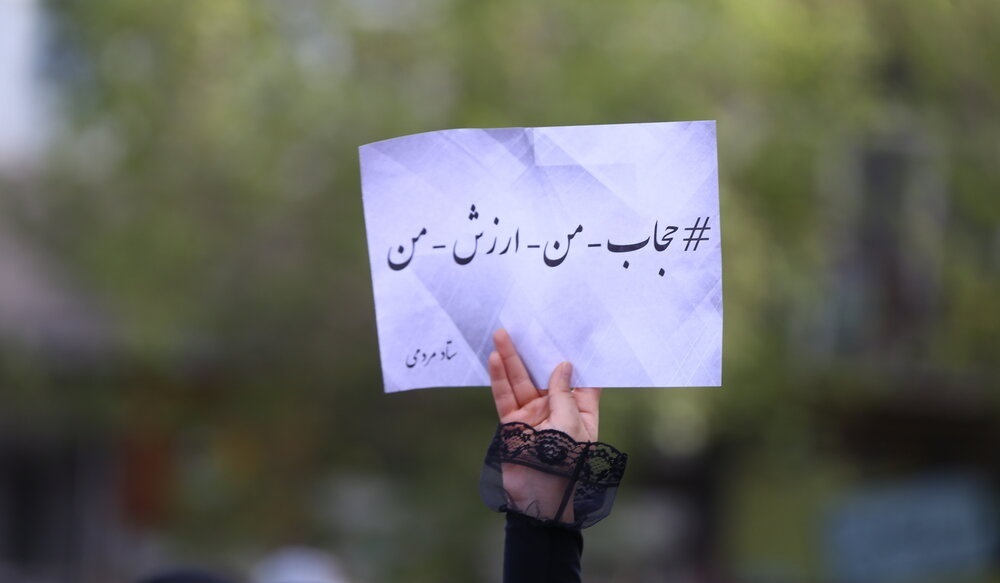 #حجاب-من-ارزش-من
ستاد مردمی